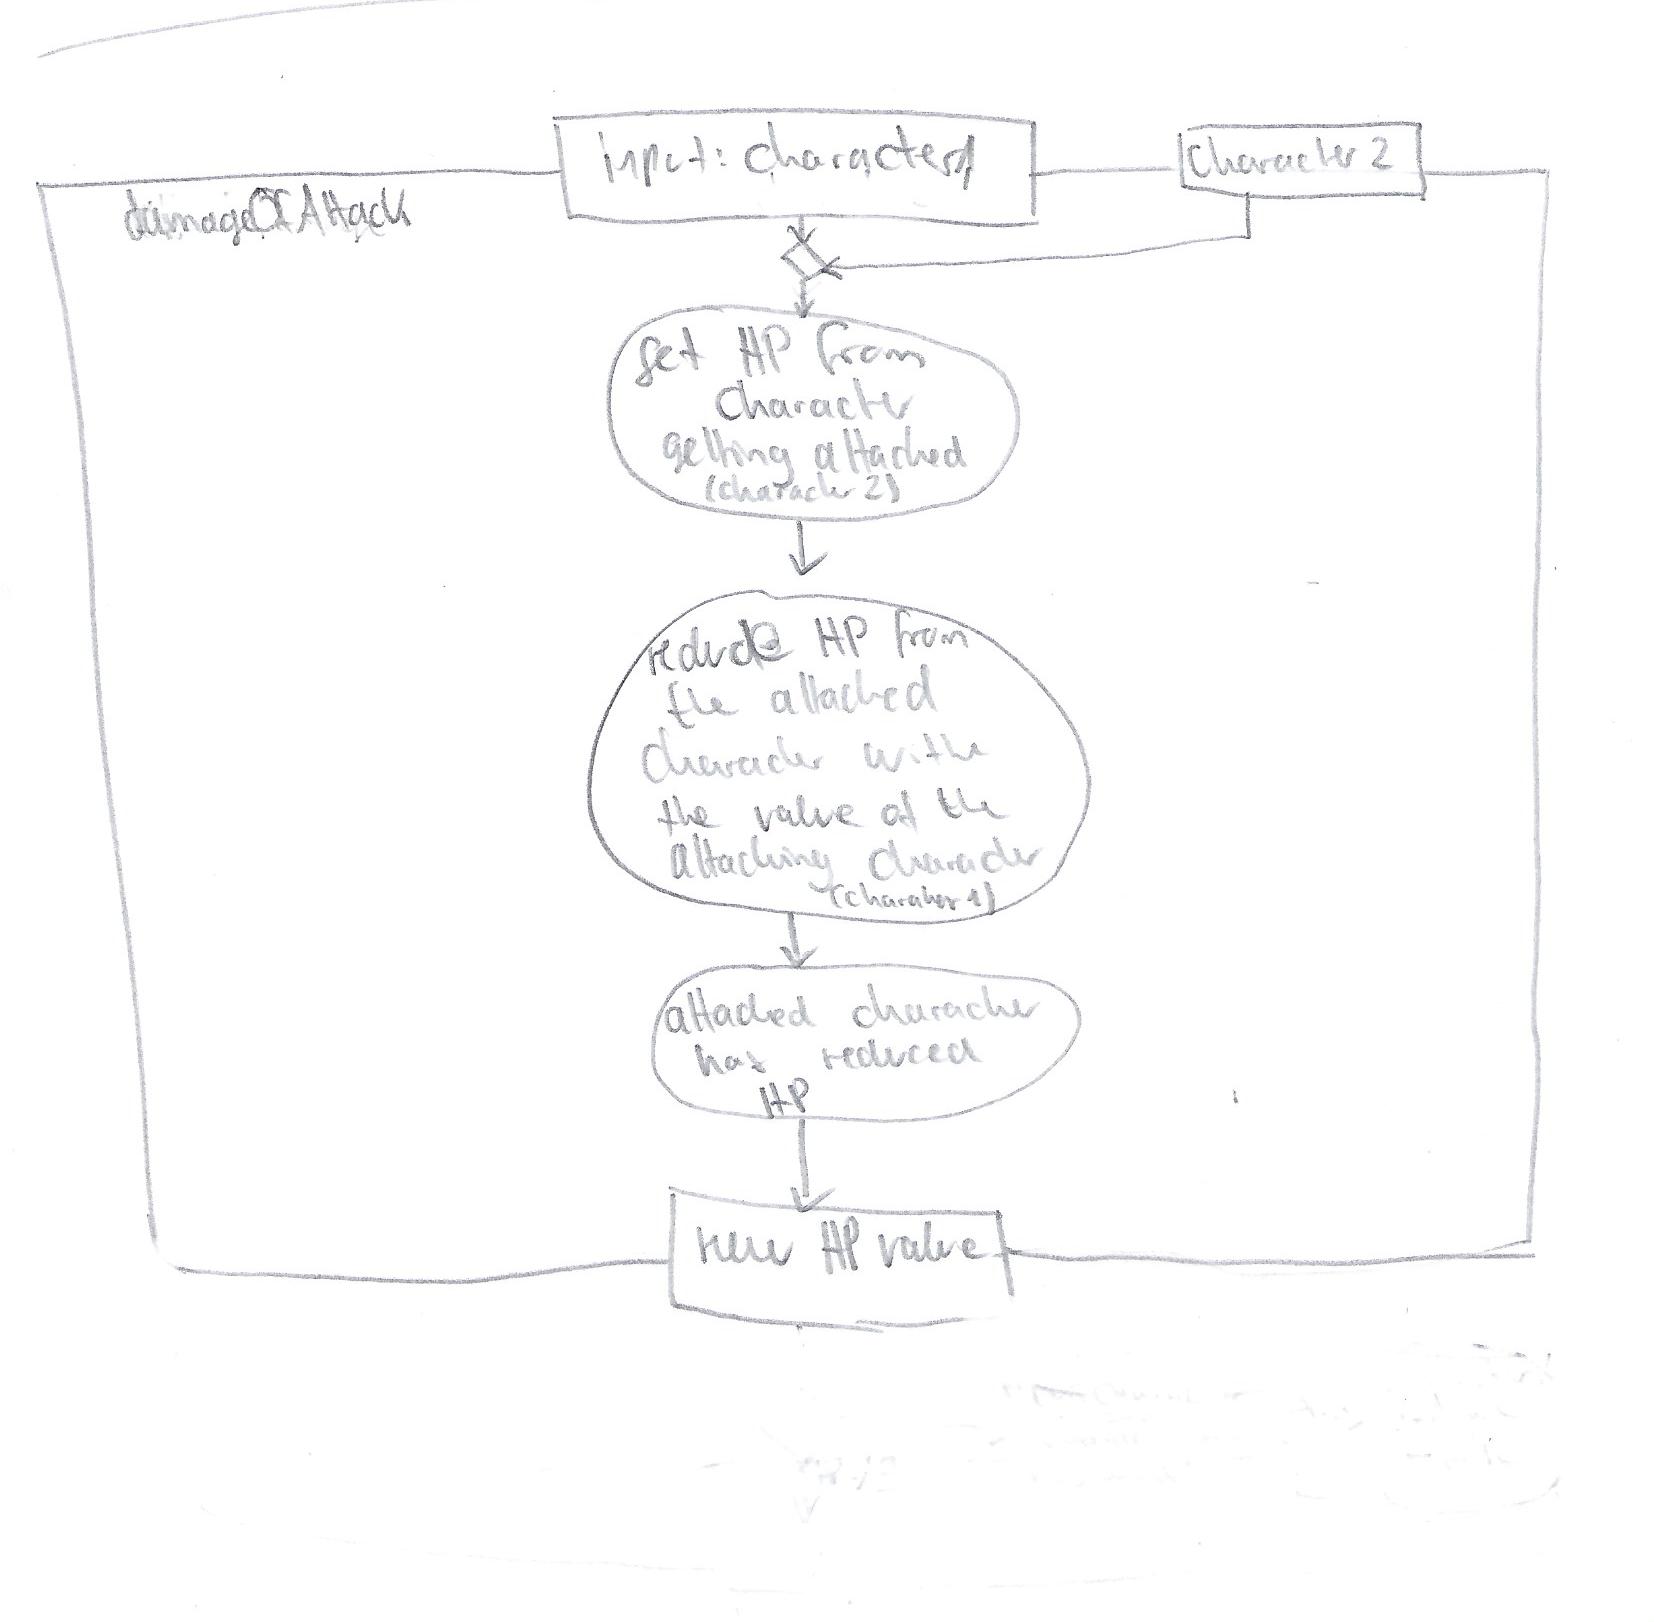 input: character1
Character 2
damageOfAttack
get HP from
character
getting attacked
(character 2)
reduce HP from
the attacked
character with
the value of the
attacking character
(character 1)
attacked character
has reduced
HP
new HP value